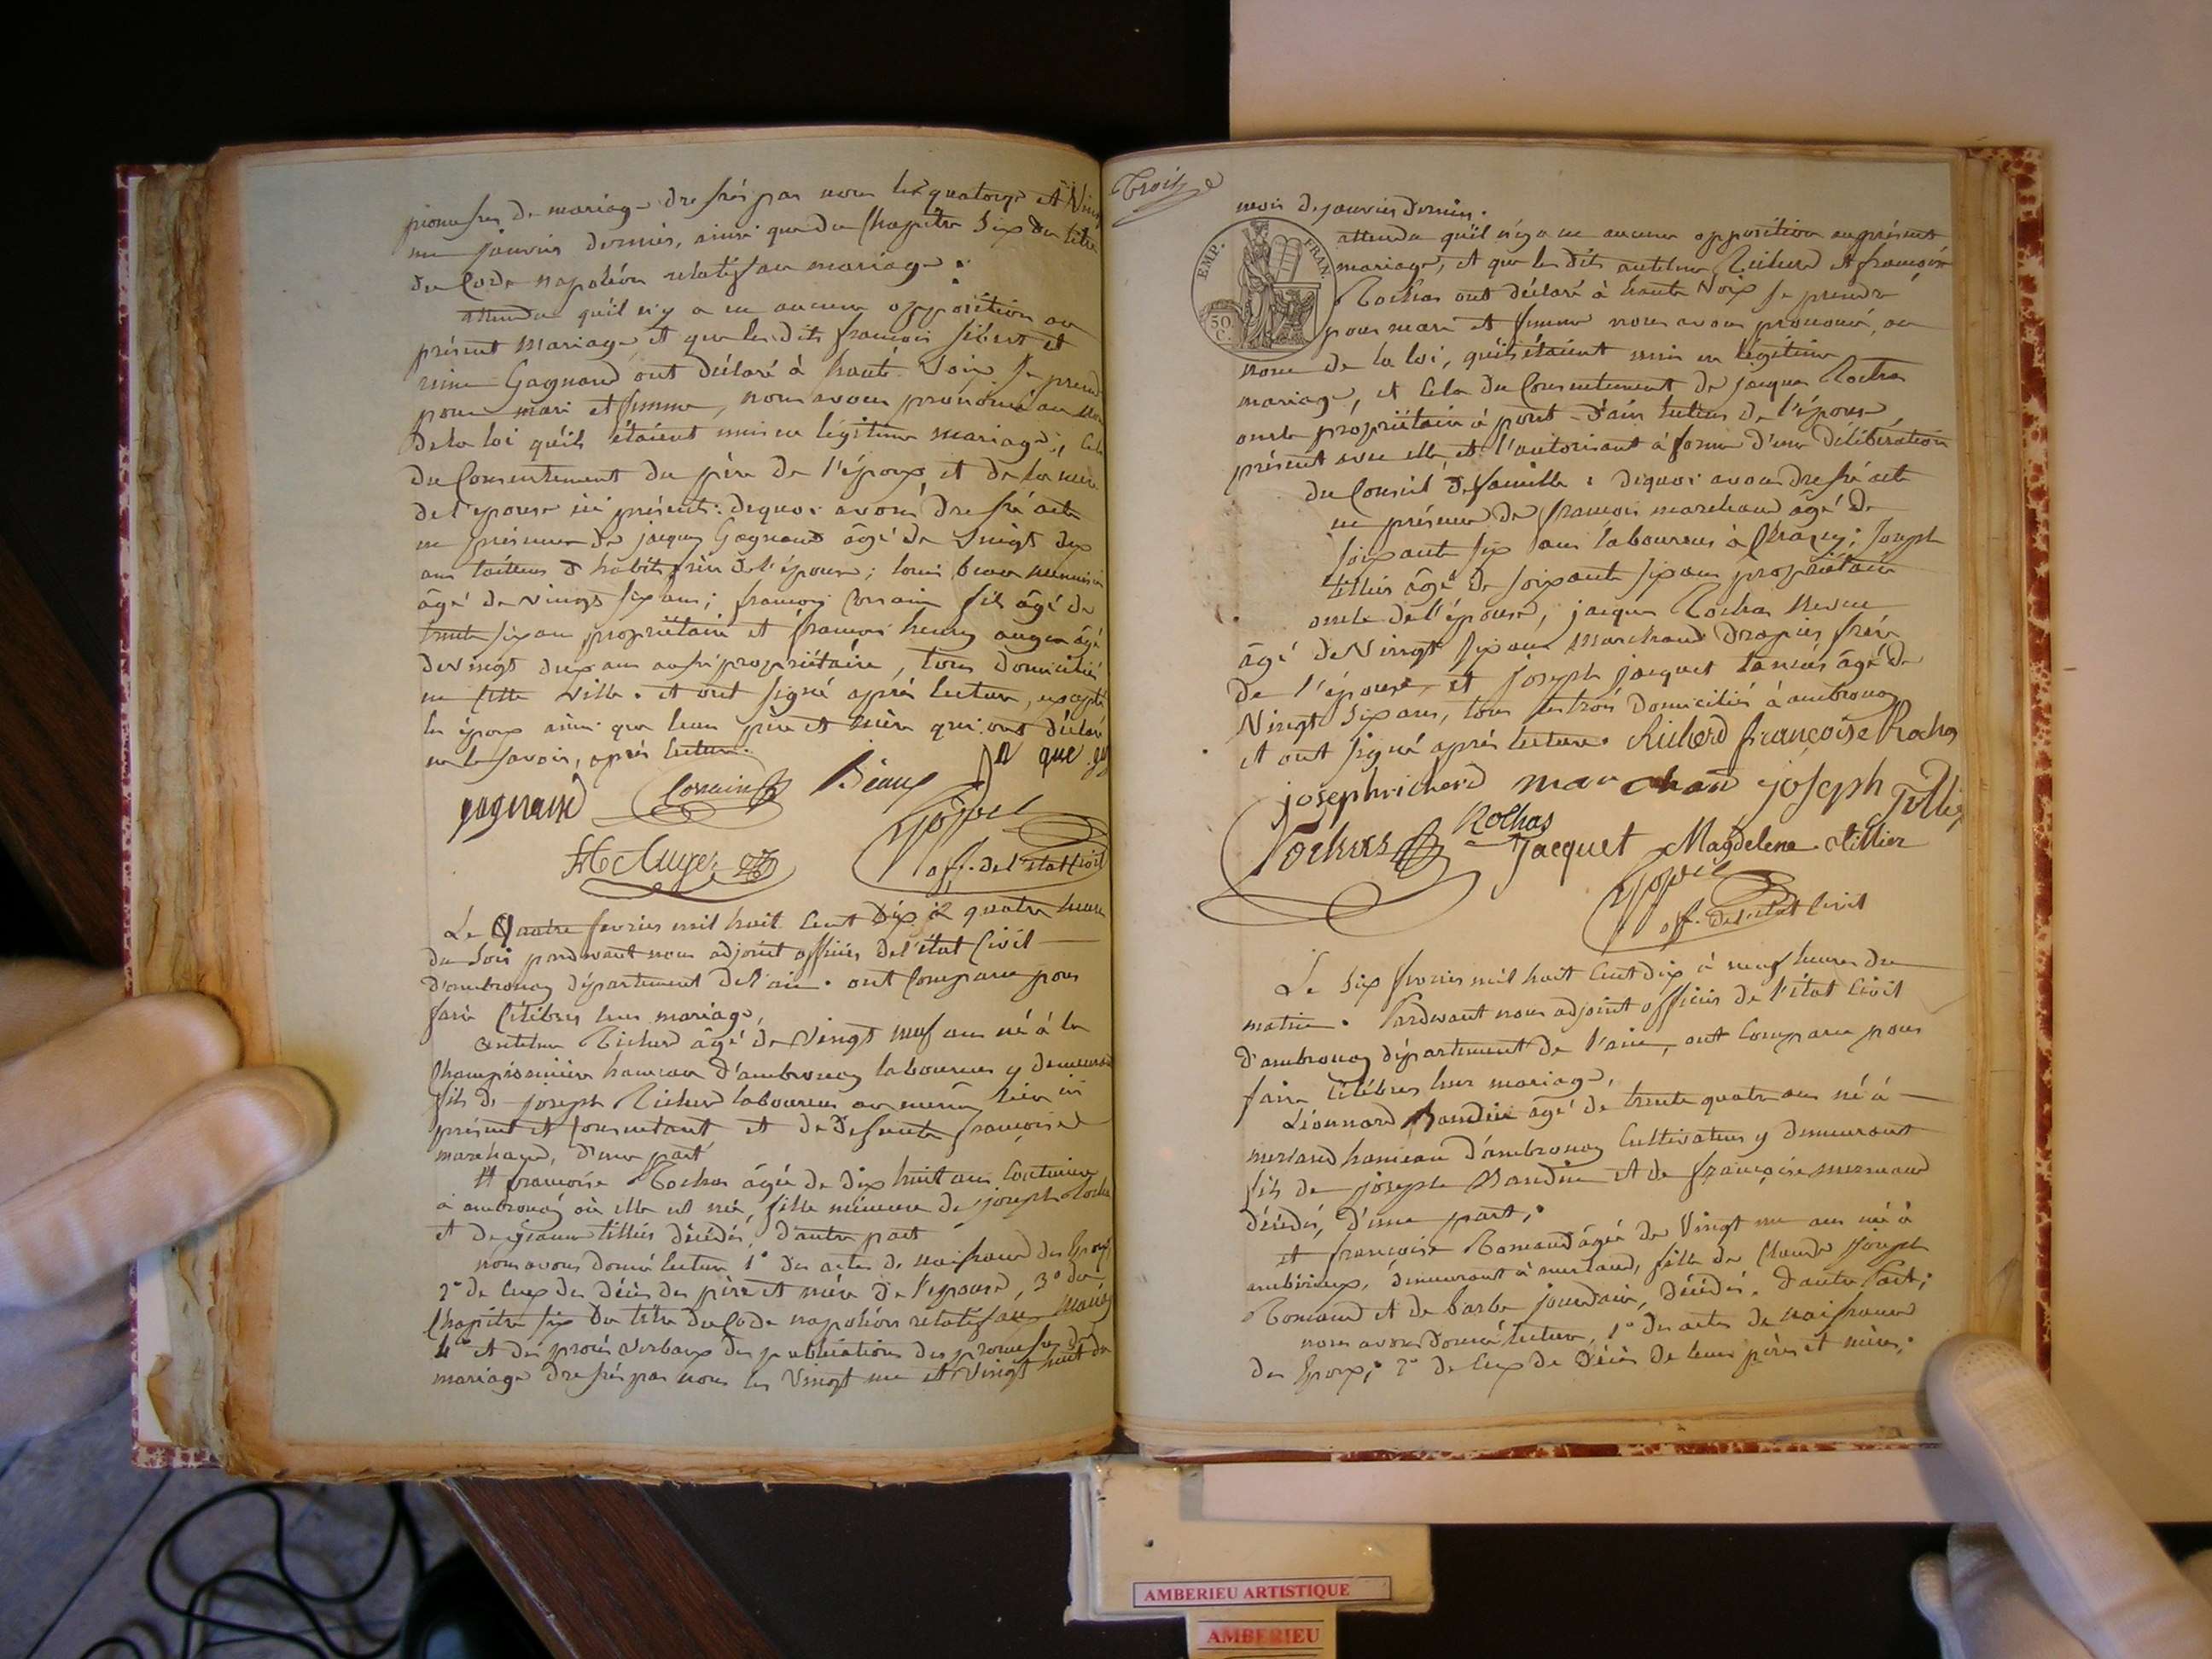 promesses de mariage dressés par nous les quatorze et Vingt
un janvier dernier, ainsi que du Chapitre Six du titre
du Code napoléon relatif au mariage.
attendu qu'il n'y a eu aucune opposition au
présent mariage, et que les dits françois sibert et
Gagnand ont déclaré à haute Voix se prendre
pour mari et femme, nous avons prononcé au nom
de la loi qu'ils étaient unis en légitime mariage; Cela
du Consentement du père de l'époux et de la mère
de l'epouse ici présents: dequoi avons dressé acte
en présence de jacques Gagnand âgé de Vingt deux
ans tailleur d habits frère de l'épouse; louis beaux menuisier
âgé de vingt six ans; françois Corsain fils âgé de
trente six ans propriétaire et françois henry auger âgé
de vingt deux ans aussi propriétaire, tous domiciliés
en cette ville. et ont signé après lecture, excepté
les époux ainsi que leurs père et mère qui ont déclaré
ne le savoir, après lecture.
gagnand Corsain Beaux
H Auger off. de l'etat Civil
Le Quatre fevrier mil huit Cent Dix à quatre heures
du Soir pardevant nous adjoint officier de l'état Civil
d'ambronay département de l'ain. ont Comparu pour
faire Célébrer leur mariage,
antelme Richerd âgé de Vingt neuf ans né à la
hameau d'ambronay laboureur y demeurant
fils de joseph Richerd laboureur au même lieu ici
présent et Consentant et de Defunte françoise
marchand, D'une part
Et françoise Rochas âgée de dix huit ans Couturière
à ambronay où elle est née, fille mineure de joseph Rochas
et de jeanne tillier décédés, d'autre part
nous avons donné lecture 1° des actes de naissance des Epoux
2° de Ceux des décès des père et mère de l'epouse, 3° du
Chapitre six du titre du Code napoléon relatif au mariage
4° et des procès verbaux des publications des promesses de
mariage dressés par nous les Vingt un et Vingt huit du
Trois
mois de janvier dernier.
EMP. FRAN.
50 C.
attendu qu'il n'y a eu aucune opposition au présent
mariage, et que les dits antelme Richerd et françoise
Rochas ont déclaré à haute Voix se prendre
pour mari et femme nous avons prononcé, au
nom de la loi, qu'ils étaient unis en légitime
mariage, et Cela du Consentement de jacques Rochas
oncle propriétaire à pont-d'ain tuteur de l'épouse
présent avec elle et l'autorisant à forme d'une Délibération
du Conseil de famille: dequoi avons dressé acte
en présence de françois marchand âgé de
soixante six ans laboureur à Joseph
tillier âgé de soixante six ans propriétaire
oncle de l'épouse, jacques Rochas
âgé de Vingt six ans marchand Drapier frère
de l'épouse, et joseph jacquet tanneur âgé de
Vingt Six ans, tous les trois Domiciliés à ambronay
et ont signé après lecture. Richerd françoise Rochas
joseph richerd marchand joseph Tillier
Rochas Rochas Jacquet Magdelene tillier
off. de l'etat Civil
Le Six fevrier mil huit Cent dix à neuf heures du
matin. Pardevant nous adjoint officier de l'état Civil
d'ambronay département de l'ain, ont Comparu pour
faire Célébrer leur mariage,
Léonnard Baudin âgé de trente quatre ans né à
merland hameau d'ambronay Cultivateur y demeurant
fils de joseph Baudin et de françoise mermand
décédés, d'une part;
et françoise Romand âgée de Vingt un ans née à
ambérieux, demeurant à merland, fille de Claude Joseph
Romand et de barbe jourdain, décédés, d'autre Part;
nous avons donné lecture, 1° des actes de naissance
des Epoux; 2° de Ceux de décès de leurs pères et mères;
AMBERIEU ARTISTIQUE
AMBERIEU